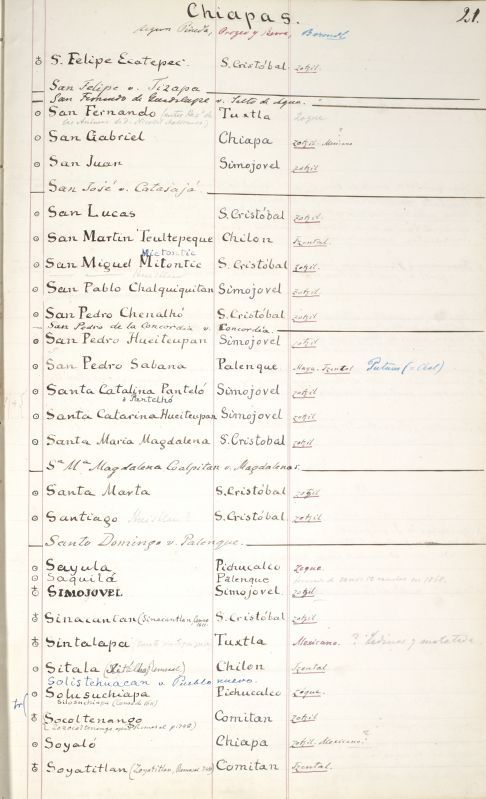 Chiapas. 21.
Segun Pineda, Orozco y Berra, Berendt
S. Felipe Ecatepec. S. Cristóbal zotzil.
San Felipe v. Tizapa
San Fernando de Guadalupe v. Salto de Agua.
San Fernando Tuxtla zoque
San Gabriel Chiapa zotzil. Mexicano?
San Juan Simojovel zotzil
San José v. Catasajá
San Lucas S. Cristóbal zotzil.
San Martin Teultepeque Chilon tzental.
Mictontic
San Miguel Mitontic S. Cristóbal zotzil.
San Pablo Chalquiquitan Simojovel zotzil.
San Pedro Chenalhó S. Cristóbal zotzil
San Pedro de la Concordia v. Concordia.
San Pedro Hueiteupan Simojovel zotzil
San Pedro Sabana Palenque Maya. Tzental Putum (=Chol)
Santa Catalina Panteló Simojovel zotzil
ó Pantelhó
Santa Catarina Hueiteupan Simojovel zotzil
Santa Maria Magdalena S. Cristobal zotzil
Sta. Ma. Magdalena Coalpitan v. Magdalenas.
Santa Marta S. Cristóbal zotzil
Santiago Huistlan? S. Cristóbal zotzil.
Santo Domingo v. Palenque.
Sayula Pichucalco zoque.
Saquilá Palenque
SIMOJOVEL Simojovel zotzil
Sinacantan (Sinacantlan S. Cristóbal zotzil
Sintalapa Tuxtla Mexicano. ? Ladinos y mulatos
Sitala Chilon tzental
Solistehuacan v. Pueblo nuevo.
Solusuchiapa Pichucalco zoque.
Silosuchiapa
Socoltenango Comitan zotzil
Soyaló Chiapa zotzil. Mexicano?
Soyatitlan (Zoyatitlan, Remesal Comitan tzental.